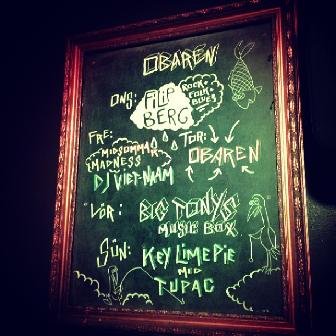 OBAREN
ONS: FILIP BERG
ROCK FOLK BLUES
TOR: OBAREN
FRE: MIDSOMMAR MADNESS
DJ VIET-NAAM
LÖR: BIG TONYS
MUSIC BOX
SÖN: KEY LIME PIE
MED
TUPAC